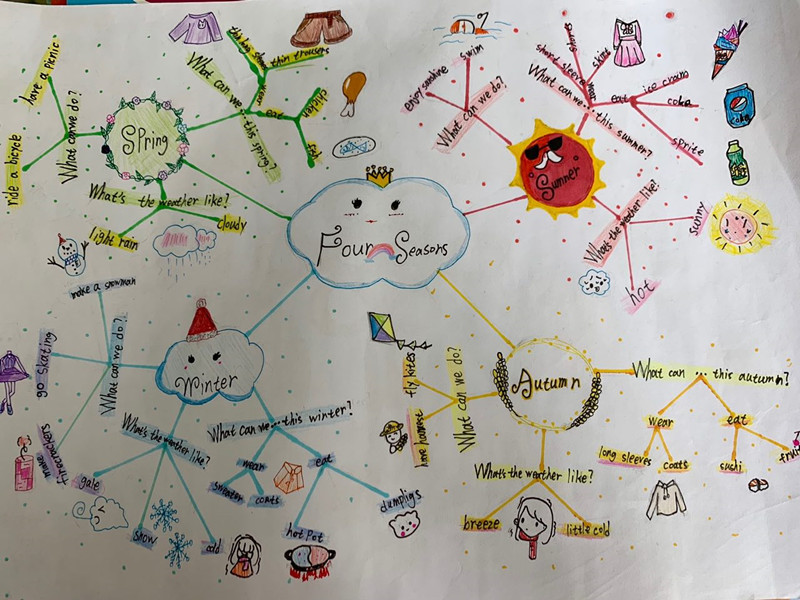 Four Seasons
Spring
What can we do?
have a picnic
ride a bicycle
What's the weather like?
light rain
cloudy
What can we ... this spring?
wear
thin trousers
eat
chicken
fish
Summer
What can we do?
enjoy sunshine
swim
What can we ... this summer?
wear
short sleeves
skirt
eat
ice cream
coke
sprite
coke
What's the weather like?
sunny
hot
Autumn
What can we do?
fly kites
have harvest
What can ... this autumn?
wear
long sleeves
coats
eat
sushi
fruit
What's the weather like?
breeze
little cold
Winter
What can we do?
make a snowman
go skating
make firecrackers
What's the weather like?
gale
snow
cold
What can we ... this winter?
wear
sweater
coats
eat
hot pot
dumplings